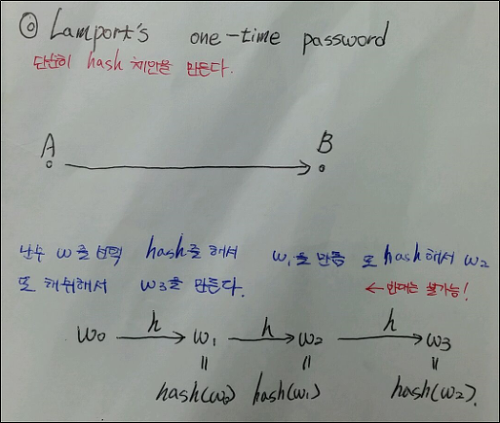 ◎ Lamport's one-time password
단순히 hash 체인을 만든다.
A B
난수 w를 선택 hash를 해서 w₁을 만듬 또 hash해서 w₂
또 해쉬해서 w₃을 만든다. ← 반대는 불가능!
w₀ h→ w₁ h→ w₂ h→ w₃
= = =
hash(w₀) hash(w₁) hash(w₂).